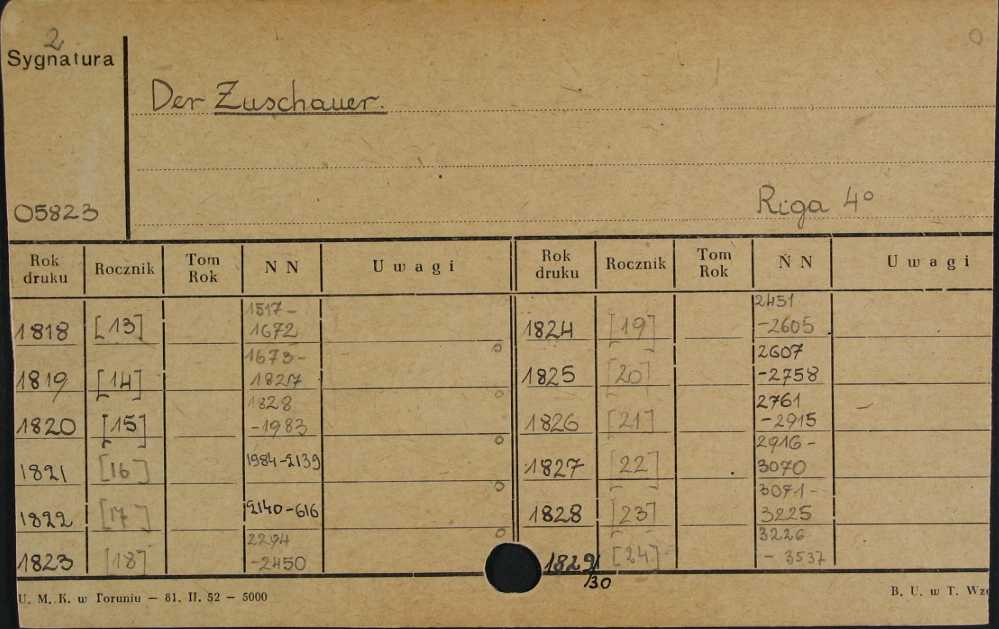 2
Sygnatura
Der Zuschauer.
05823
Riga 4º
Rok druku Rocznik Tom Rok N N Uwagi Rok druku Rocznik Tom Rok N N Uwagi
1818 [13] 1517-1672
1819 [14] 1673-1827
1820 [15] 1828-1983
1821 [16] 1984-2139
1822 [17] 2140-616
1823 [18] 2294-2450
1824 [19] 2451-2605
1825 [20] 2607-2758
1826 [21] 2761-2915
1827 [22] 2916-3070
1828 [23] 3071-3225
1829/30 [24] 3226-3537
U. M. K. w Toruniu – 81. II. 52 – 5000
B. U. w T. Wz